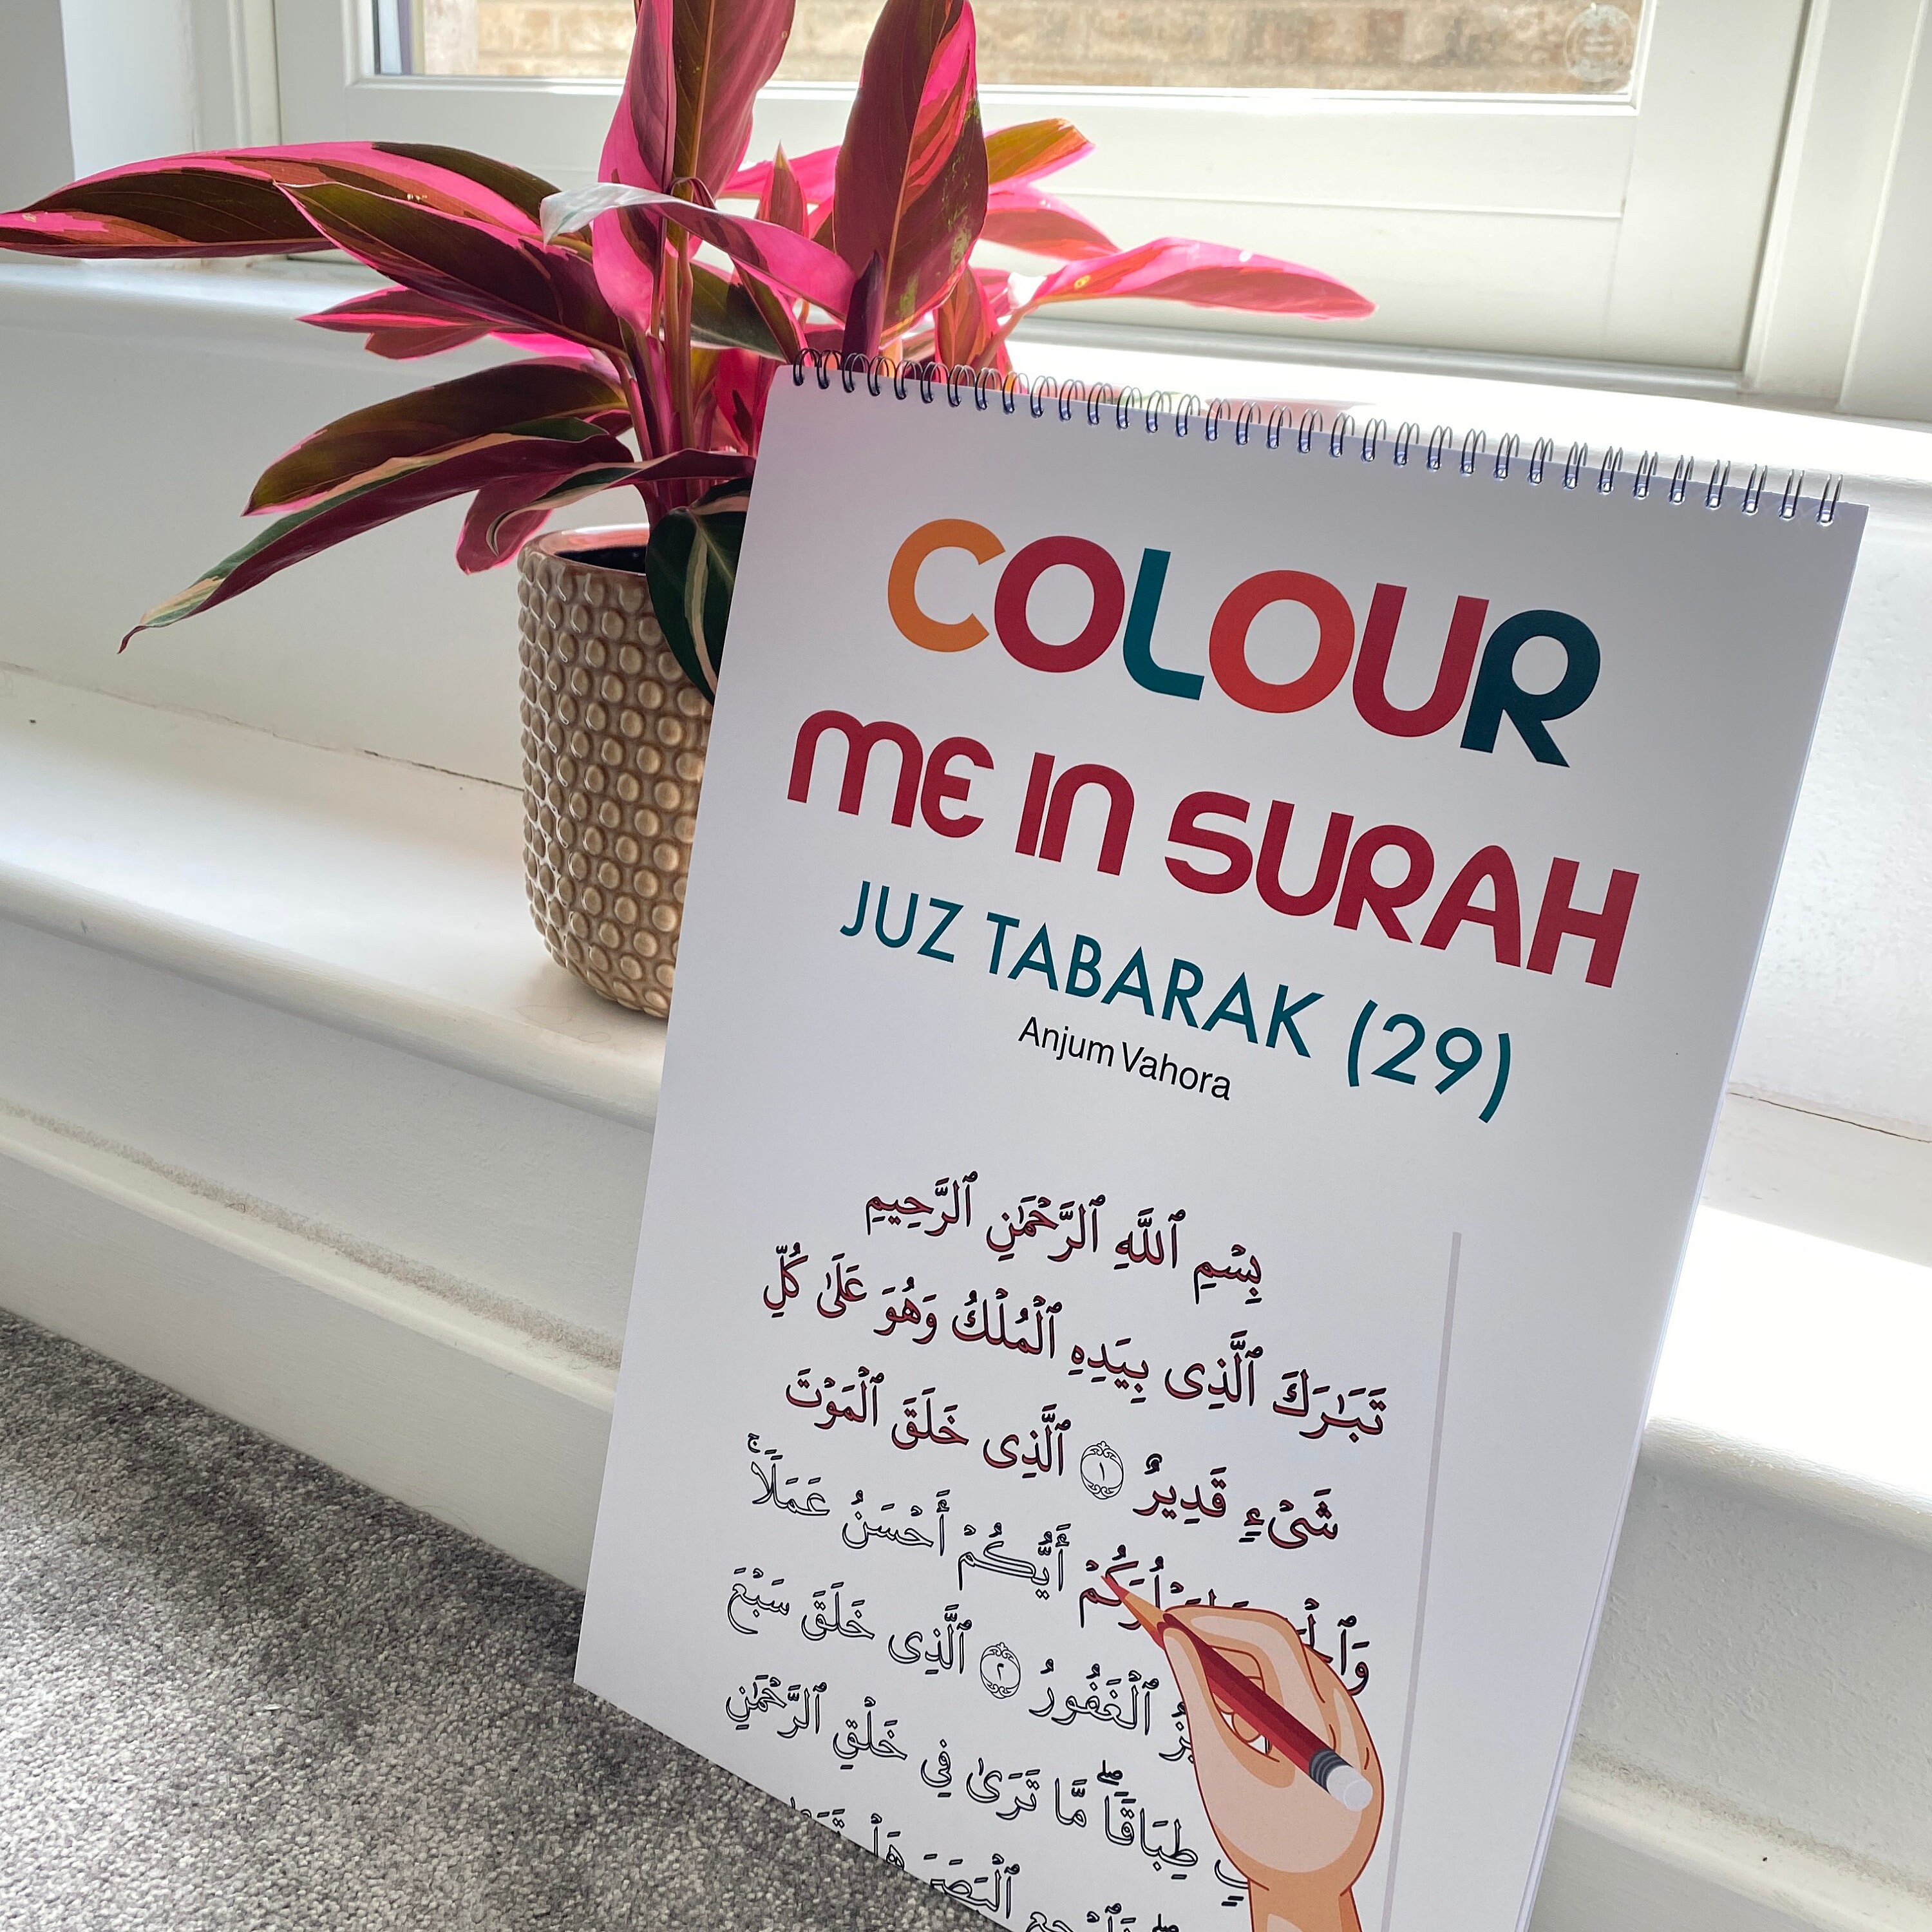 COLOUR
ME IN SURAH
JUZ TABARAK (29)
Anjum Vahora
بِسْمِ ٱللَّهِ ٱلرَّحْمَٰنِ ٱلرَّحِيمِ
تَبَٰرَكَ ٱلَّذِى بِيَدِهِ ٱلْمُلْكُ وَهُوَ عَلَىٰ كُلِّ
شَىْءٍ قَدِيرٌ ١ ٱلَّذِى خَلَقَ ٱلْمَوْتَ
أَيُّكُمْ أَحْسَنُ عَمَلًا ۚ
ٱلْغَفُورُ ٢ ٱلَّذِى خَلَقَ سَبْعَ
طِبَاقًا ۖ مَّا تَرَىٰ فِى خَلْقِ ٱلرَّحْمَٰنِ
ٱلْبَصَرَ هَلْ